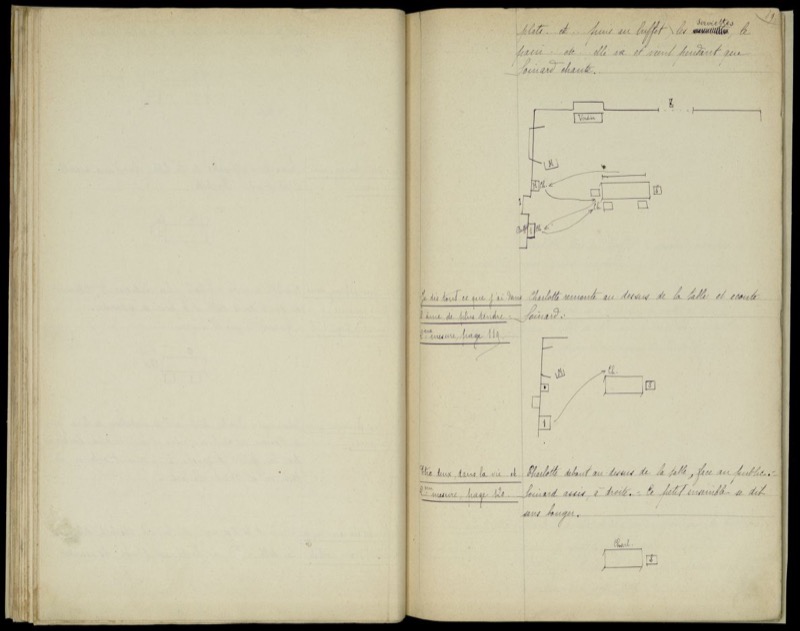 19
serviettes
plats etc. puis au buffet les le
panier etc. elle va et vient pendant que
Poinard chante.
Charlotte remonte au dessus de la table et écoute
Poinard.
Je dis tout ce que j'ai dans
l'âme de plus tendre
mesure, page 119
Ch.
Être deux dans la vie et
mesure, page 120
Charlotte debout au dessus de la table, face au public.-
Poinard assis à droite. - Ce petit ensemble se dit
sans bouger.